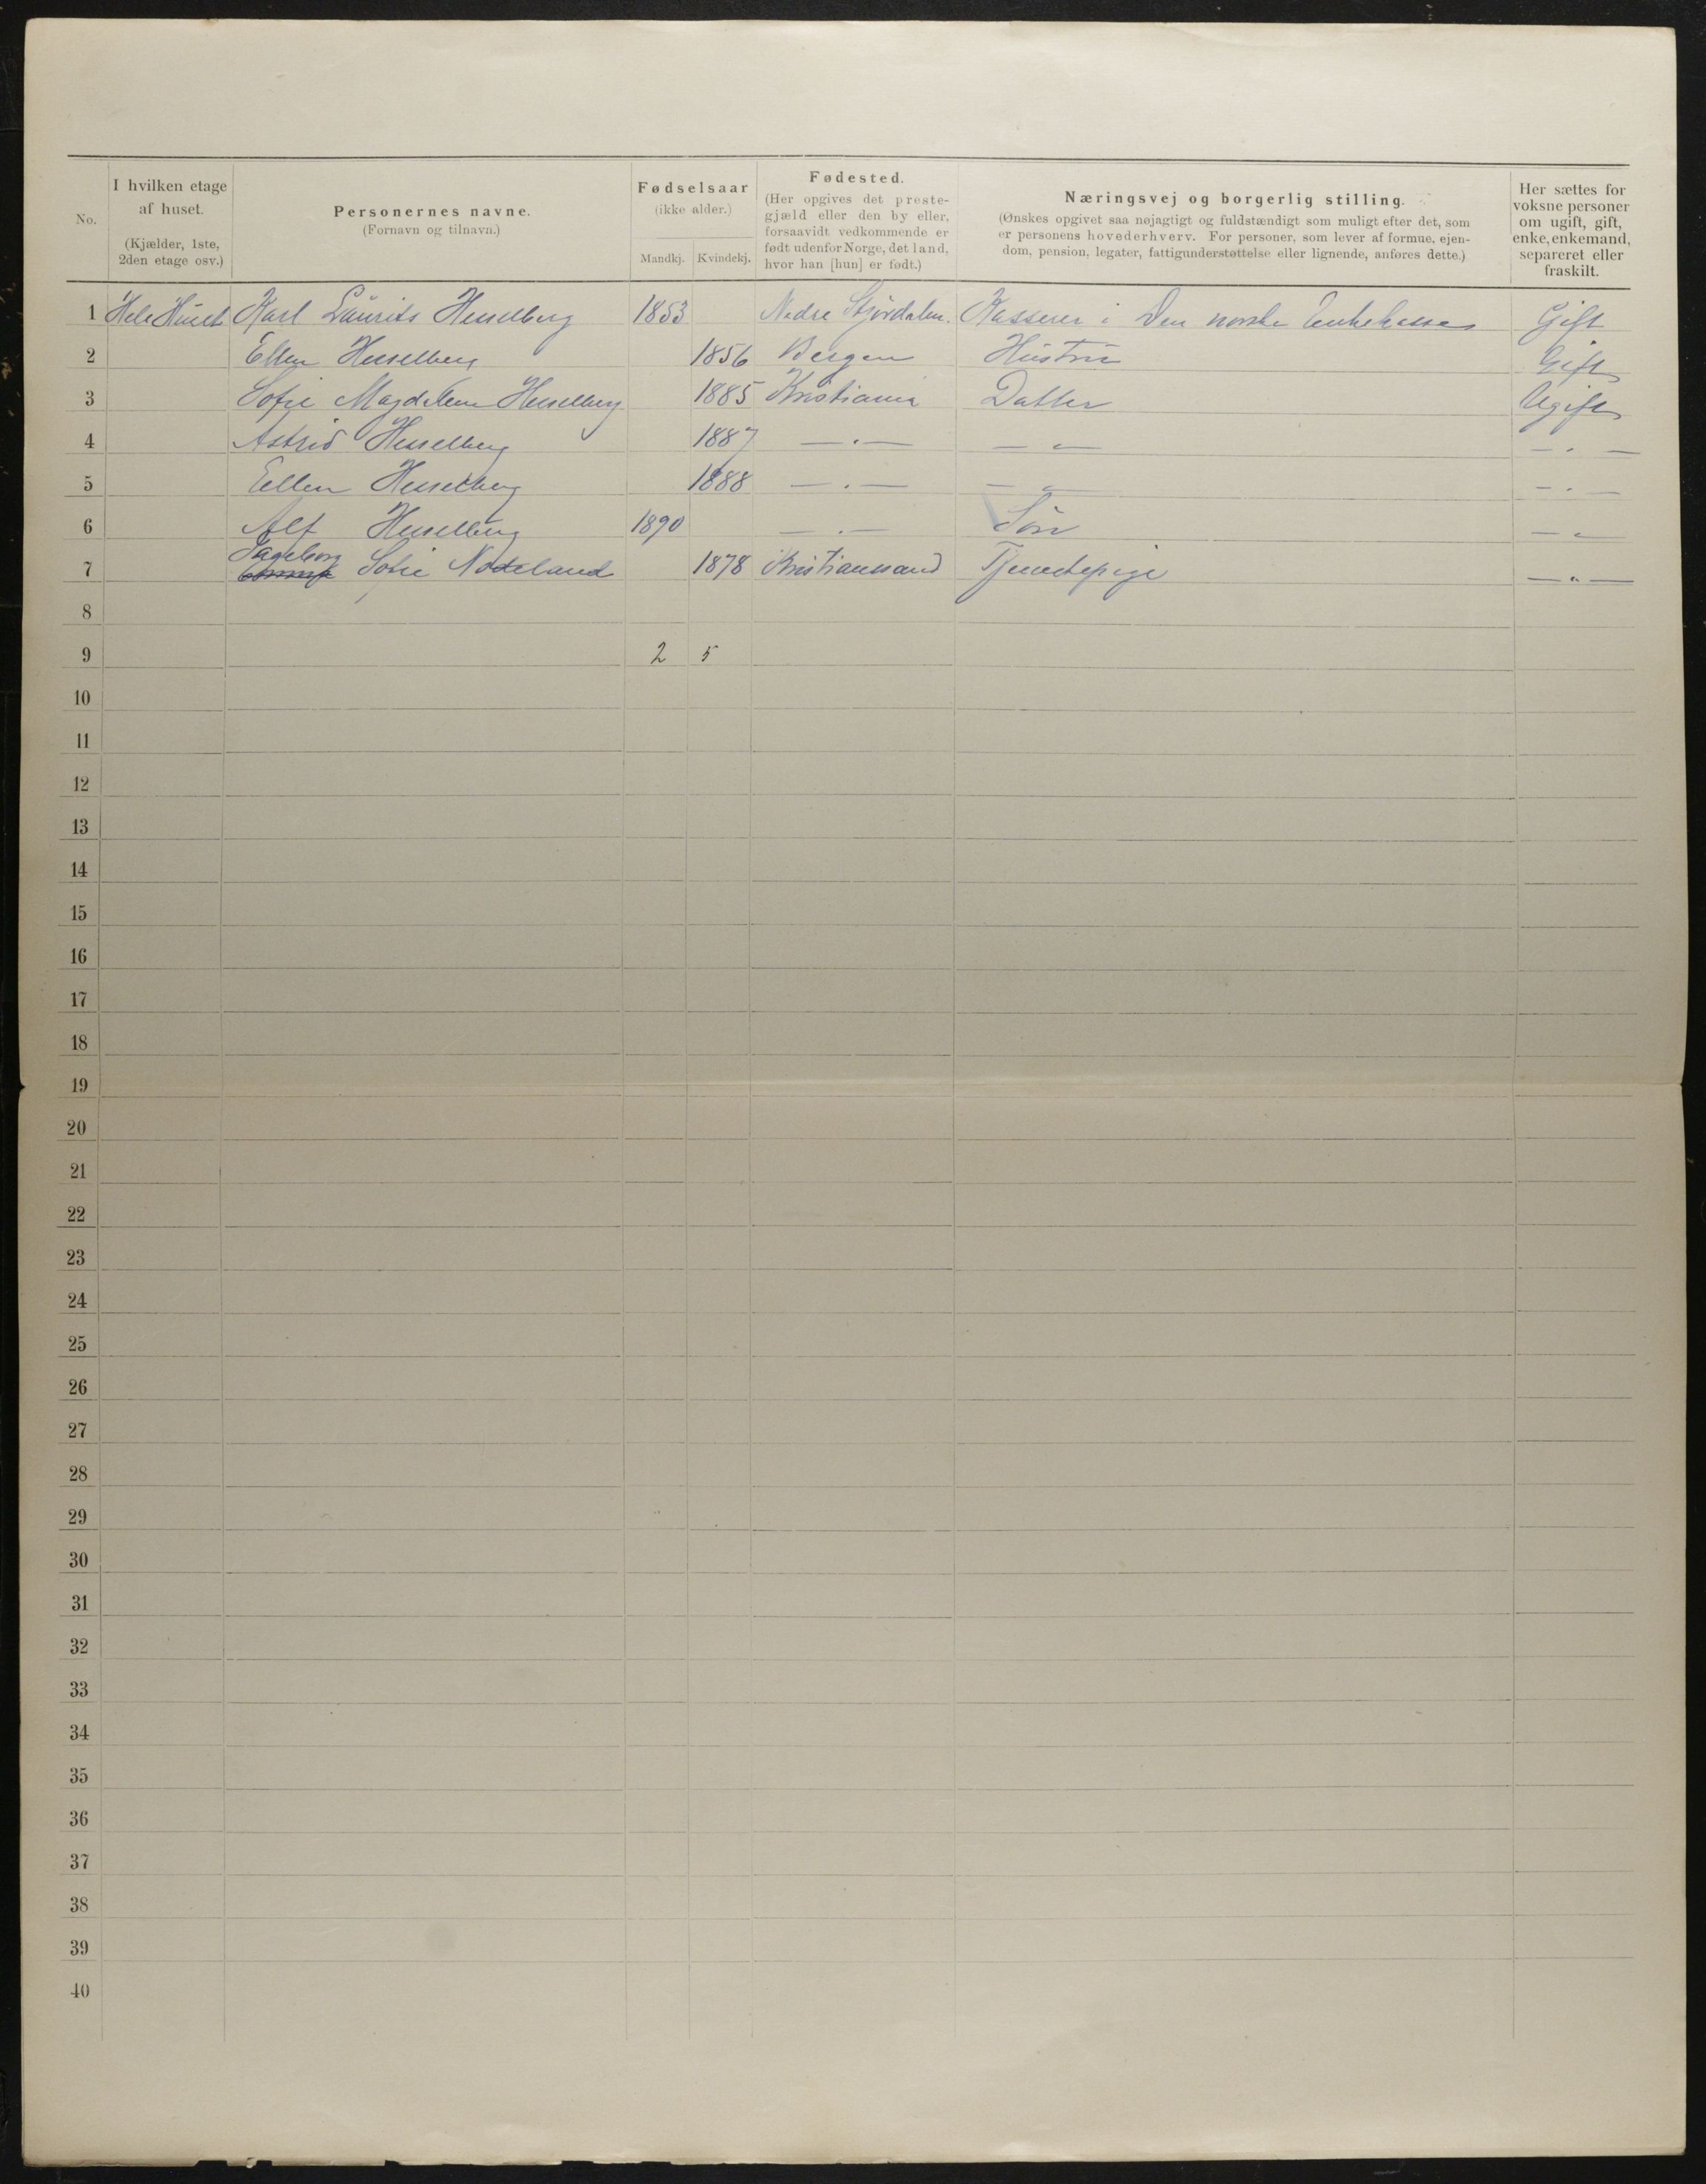 No. | I hvilken etage af huset. (Kjælder, 1ste, 2den etage osv.) | Personernes navne. (Fornavn og tilnavn.) | Fødselsaar (ikke alder.) Mandkj. | Kvindekj. | Fødested. (Her opgives det prestegjæld eller den by eller, forsaavidt vedkommende er født udenfor Norge, det land, hvor han [hun] er født.) | Næringsvej og borgerlig stilling. (Ønskes opgivet saa nøjagtigt og fuldstændigt som muligt efter det, som er personens hovederhverv. For personer, som lever af formue, ejendom, pension, legater, fattigunderstøttelse eller lignende, anføres dette.) | Her sættes for voksne personer om ugift, gift, enke, enkemand, separeret eller fraskilt.
1 Hele Huset Karl Laurits Hesselberg 1853 Nedre Stjørdalen. Kasserer i Den norske Enkekasse Gift
2 Ellen Hesselberg 1856 Bergen Hustru Gift
3 Sofie Magdalene Hesselberg 1885 Kristiania Datter Ugift
4 Astrid Hesselberg 1887 — " — — " — — " —
5 Ellen Hesselberg 1888 — " — — " — — " —
6 Alf Hesselberg 1890 — " — Søn — " —
7 Ingeborg Sofie Nodeland 1878 Kristianssand Tjenestepige — " —
8
9 2 5
10
11
12
13
14
15
16
17
18
19
20
21
22
23
24
25
26
27
28
29
30
31
32
33
34
35
36
37
38
39
40